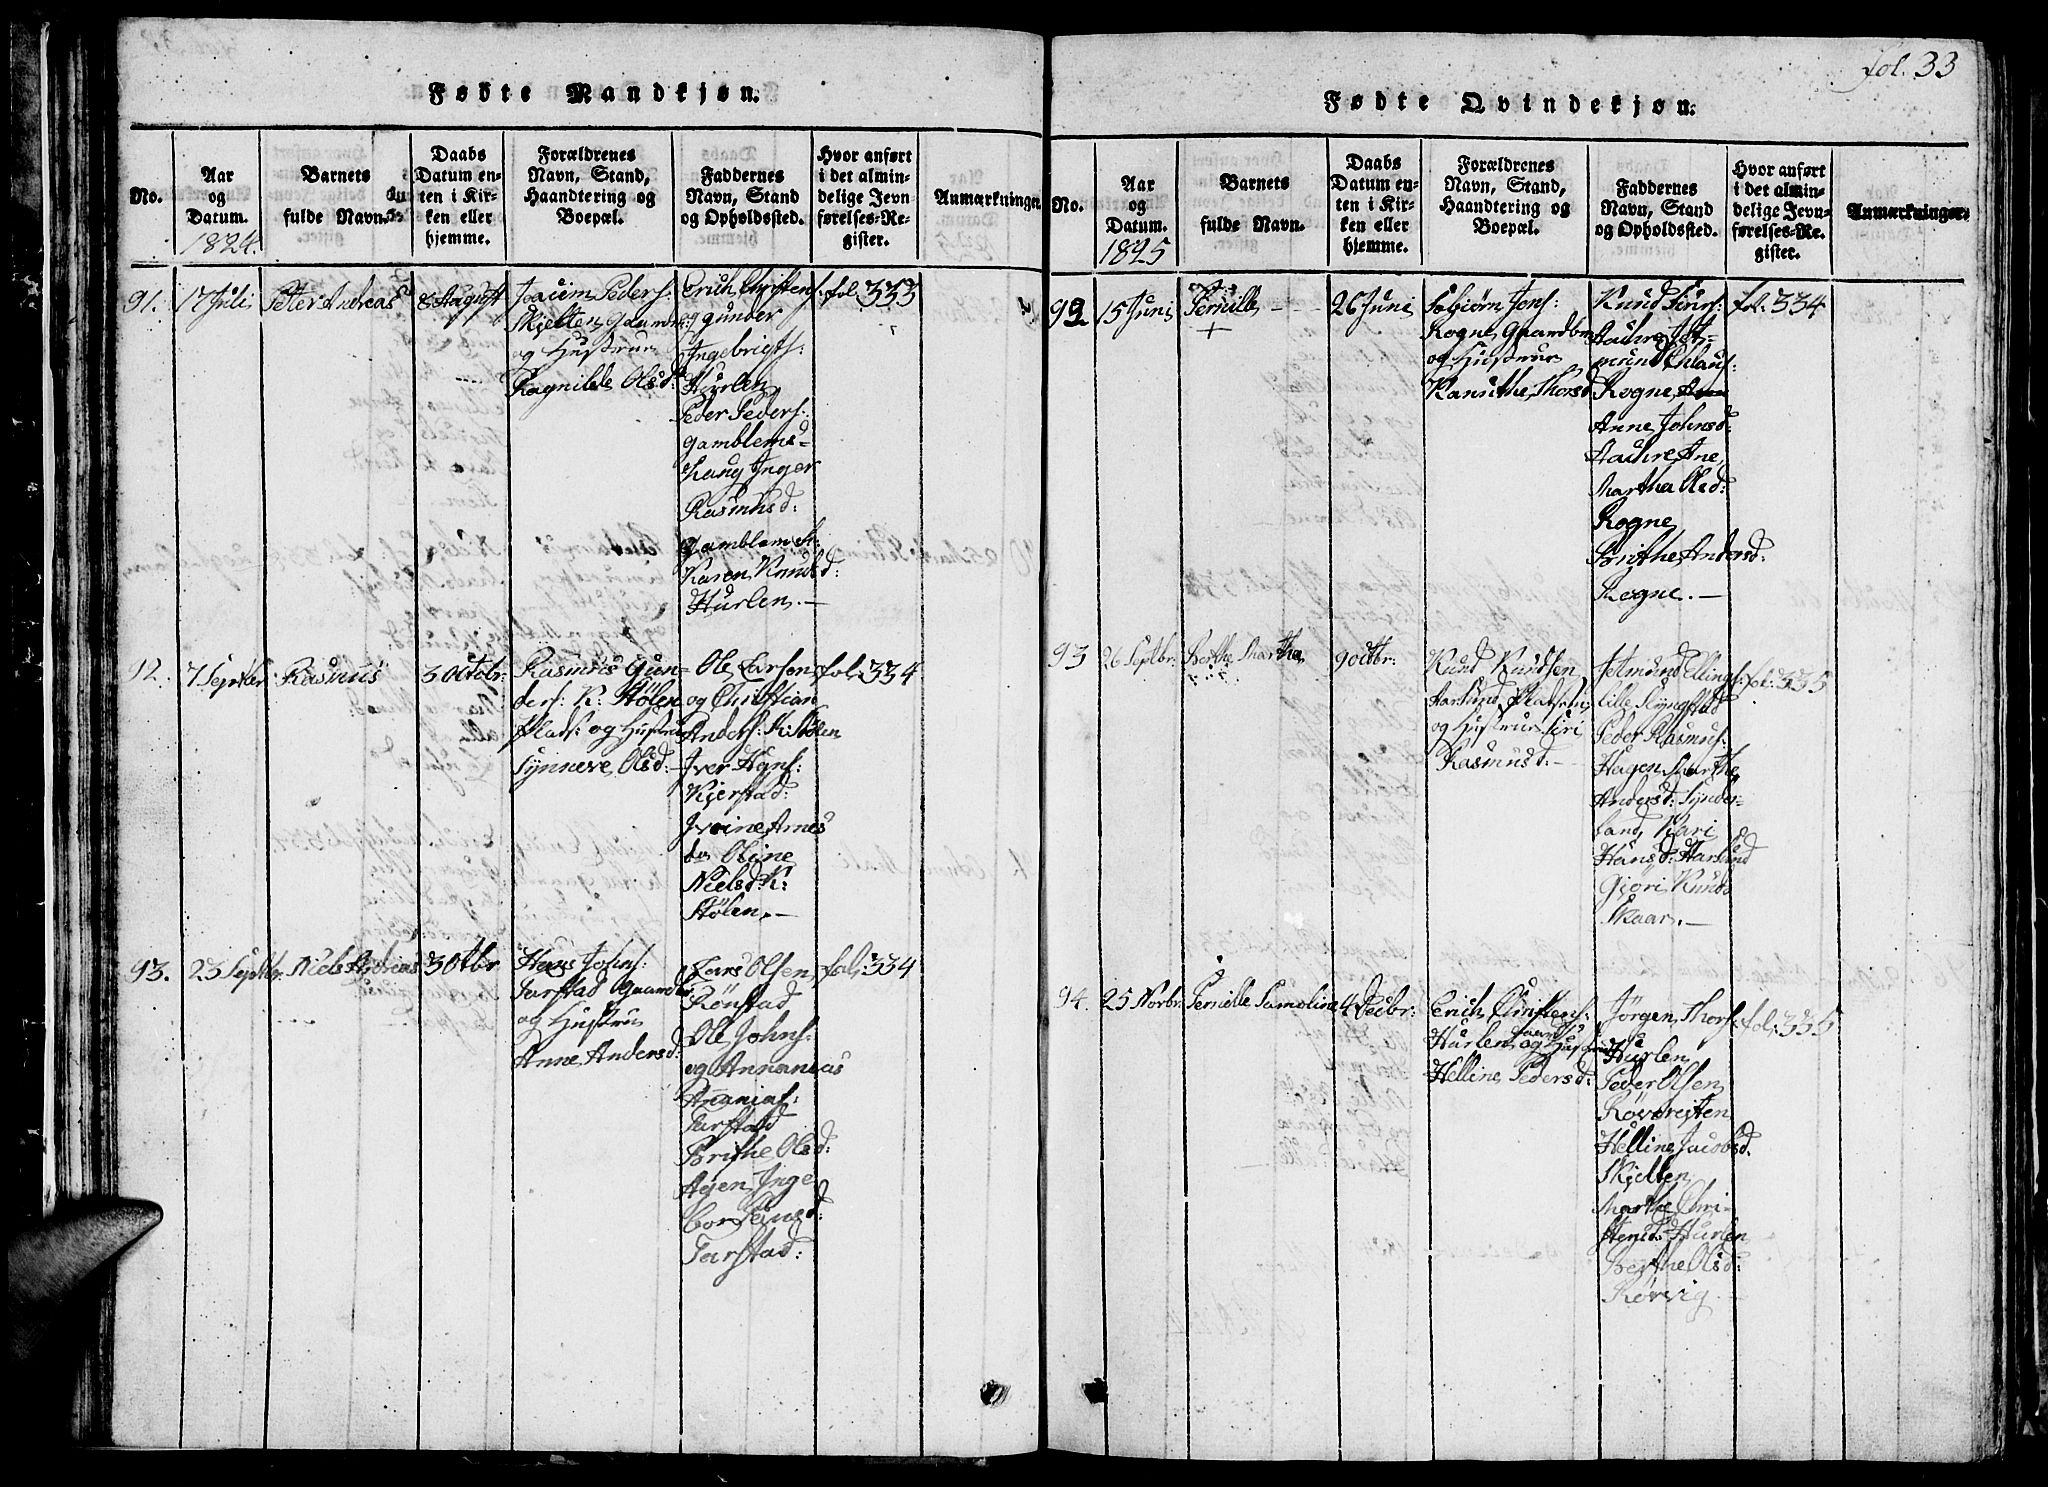 fol. 33
Fødte Mandkjøn.
No.
Aar og Datum.
1824.
Barnets fulde Navn.
Daabs Datum enten i Kirken eller hjemme.
Forældrenes Navn, Stand, Haandtering og Boepæl.
Faddernes Navn, Stand og Opholdssted.
Hvor anført i det almindelige Jevnførelses-Register.
Anmærkninger.
91. 17 Juli Peter Andreas 8 August
Joacim Peders:
Skjelten Gaardbr:
og Hustrue
Ragnilde Olsd:
Erich Christens:
og Gunder
Ingebrigts:
Hurlen
Peder Peders:
Gamblems-
haug Inger
Rasmusd:
Gamblem
Karen Knudsd:
Hurlen. —
fol: 333
92. 7 Septbr Rasmus 3 Octbr:
Rasmus Gun-
ders: K: Stølen
Plads: og Hustrue
Synneve Olsd: —
Ole Larsen
og Christian
Anders: K: Stølen
Iver Hans:
Kjerstad
Ivrine Arnes
do Oline
Nielsd: K:
Stølen. —
fol: 334
93. 23 Septbr: Niels Andreas 3 Octbr
Hans Johns:
Tarstad Gaardbr
og Hustrue
Anne Andersd:
Lars Olsen
Rønstad
Ole Johns:
og Annanias
Ananias:
Tarstad
Brithe Olsd:
Agen Inge
bor Hansd:
Tarstad:
fol: 334
Fødte Qvindekjøn.
No.
Aar og Datum.
1825
Barnets fulde Navn.
Daabs Datum enten i Kirken eller hjemme.
Forældrenes Navn, Stand, Haandtering og Boepæl.
Faddernes Navn, Stand og Opholdssted.
Hvor anført i det almindelige Jevnførelses-Register.
Anmærkninger.
92. 15 Juni Pernille + 26 Juni
Asbjørn Jons:
Rogne Gaardbr
og Hustrue
Kanuthe Thorsd
Knud
Aachre Jet-
mund Enlaus:
Rogne
Anne Johnsd:
Aachre Ane
Martha Olsd:
Rogne
Brithe Andersd:
Rogne. —
fol: 334
93 26 Septbr: Berthe Martha 9 Octbr:
Knud Knudsen
Harlund Pladsm
og Hustrue Siri
Rasmusd: —
Jetmund Ellings:
lille Slyngstad
Peder Rasmus:
Hagen Marthe
Andersd: Synder-
land Kari
Hansd: Harlund
Gjøri Knuds
Skaar. —
fol: 335
94. 25 Novbr: Pernille Samoline 4 Decbr:
Erich Christens:
Hurlen Gaardbr og Hustrue
Helline Pedersd:
Jørgen Thors:
Hurlen
Peder Olsen
Røvoreiten
Helline Jacobsd.
Skjelten
Marthe Chri-
stensd: Hurlen
Berthe Olsd:
Rørvig —
fol: 335